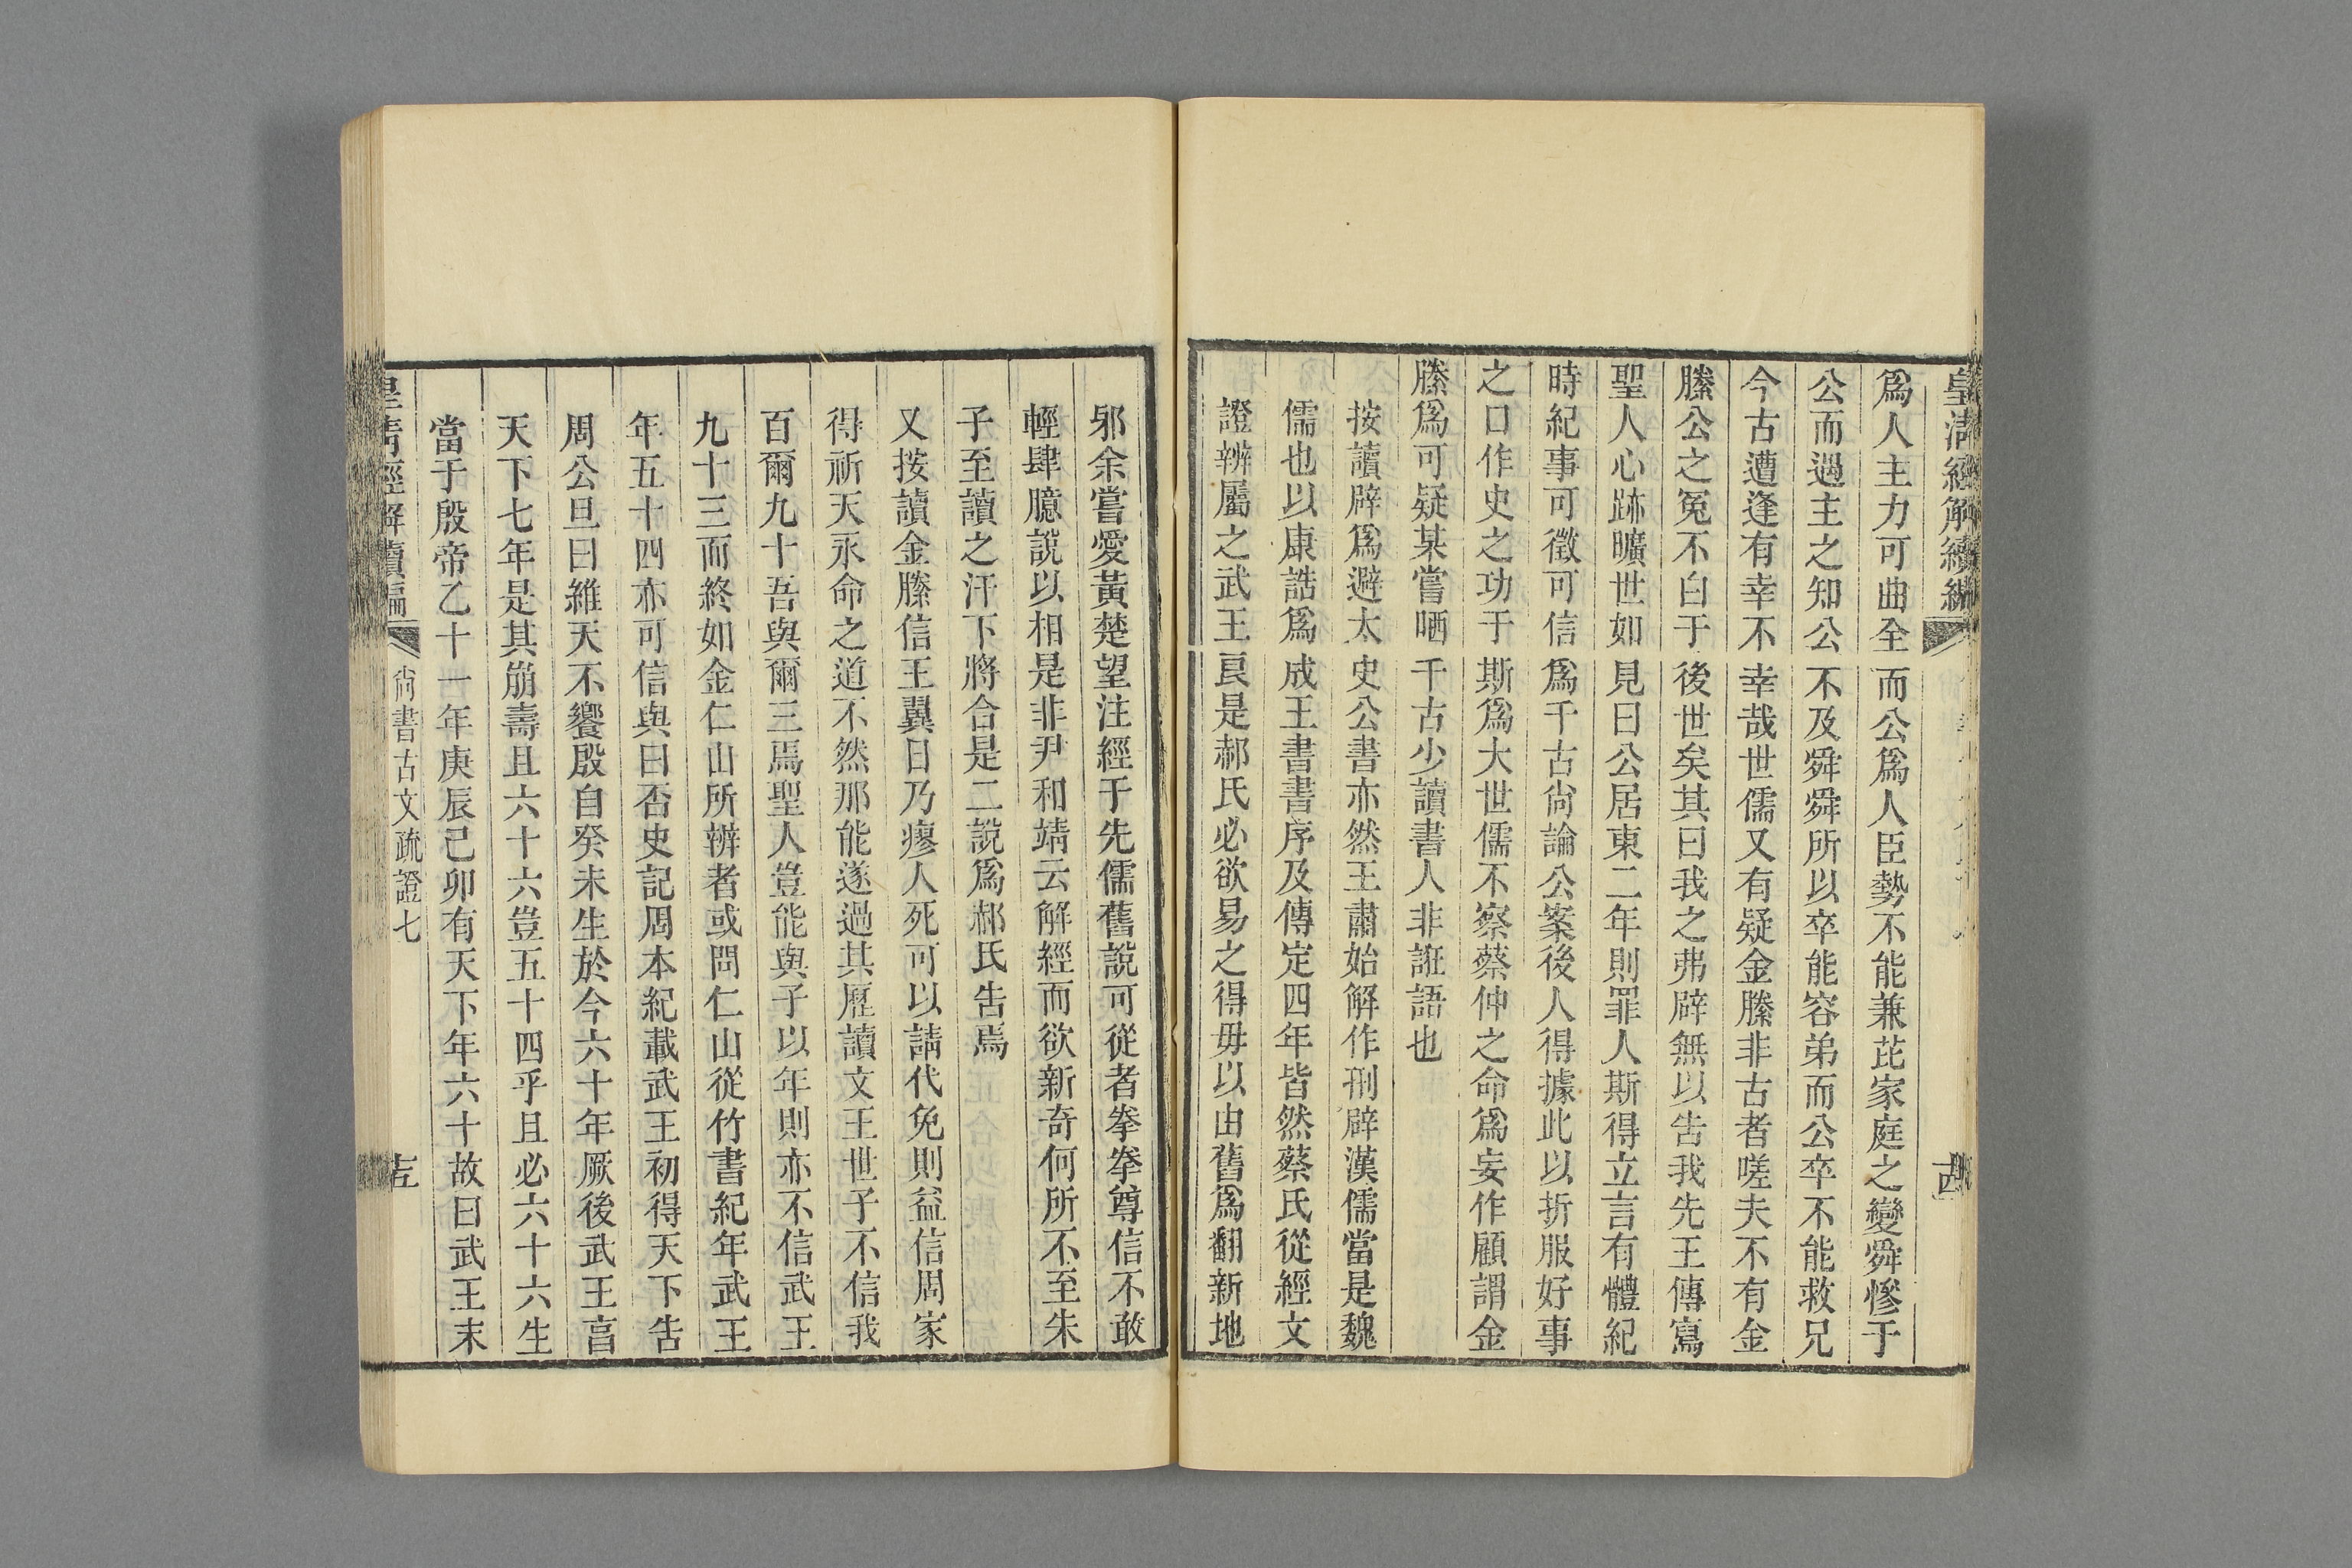 皇清經解續編
爲人主力可曲全而公爲人臣勢不能兼芘家庭之變舜慘于
公而遇主之知公不及舜舜所以卒能容弟而公卒不能救兄
今古遭逢有幸不幸哉世儒又有疑金縢非古者嗟夫不有金
縢公之冤不白于後世矣其曰我之弗辟無以告我先王傳寫
聖人心跡曠世如見曰公居東二年則罪人斯得立言有體紀
時紀事可徵可信爲千古尙論公案後人得據此以折服好事
之口作史之功于斯爲大世儒不察蔡仲之命爲妄作顧謂金
縢爲可疑某嘗哂千古少讀書人非誑語也
按讀辟爲避太史公書亦然王肅始解作刑辟漢儒當是魏
儒也以康誥爲成王書書序及傳定四年皆然蔡氏從經文
證辨屬之武王良是郝氏必欲易之得毋以由舊爲翻新地
邪余嘗愛黃楚望注經于先儒舊說可從者拳拳尊信不敢
輕肆臆說以相是非尹和靖云解經而欲新奇何所不至朱
子至讀之汗下將合是二說爲郝氏告焉
又按讀金縢信王翼日乃瘳人死可以請代免則益信周家
得祈天永命之道不然那能遂過其歷讀文王世子不信我
百爾九十吾與爾三焉聖人豈能與子以年則亦不信武王
九十三而終如金仁山所辨者或問仁山從竹書紀年武王
年五十四亦可信與曰否史記周本紀載武王初得天下告
周公旦曰維天不饗殷自癸未生於今六十年厥後武王㐭
天下七年是其崩壽且六十六豈五十四乎且必六十六生
當于殷帝乙十一年庚辰己卯有天下年六十故曰武王末
皇清經解續編 尙書古文疏證七